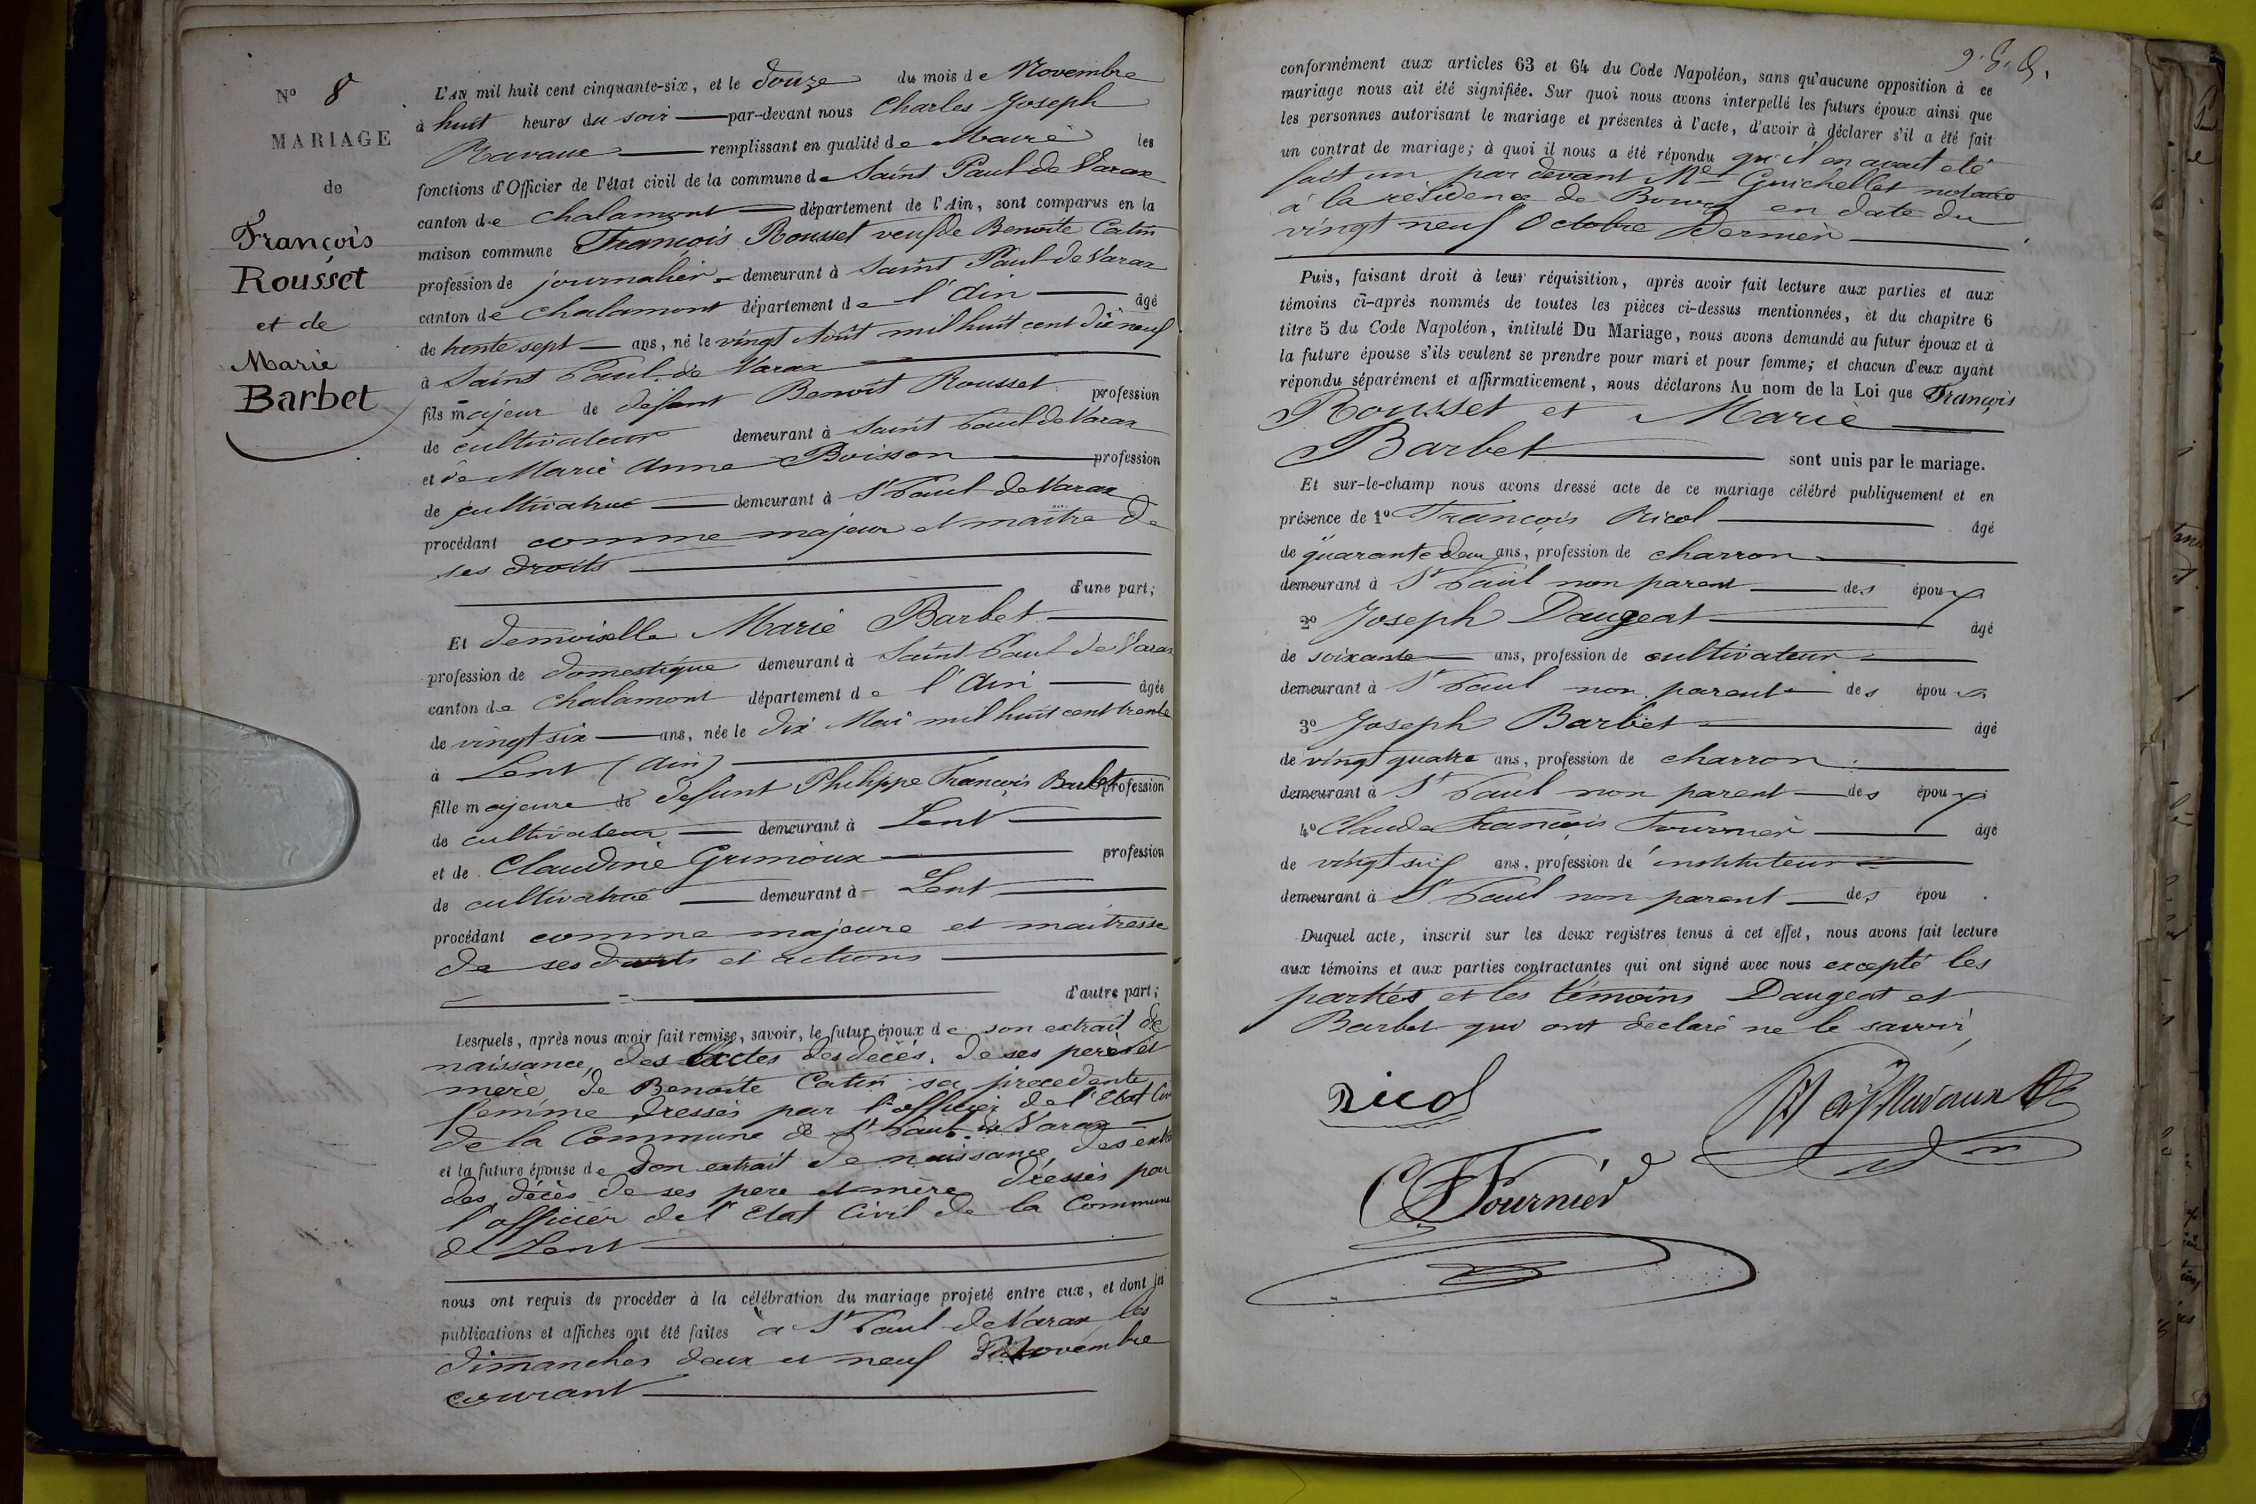 N° 8
MARIAGE
de
François
Rousset
et de
Marie
Barbet
L'AN mil huit cent cinquante-six, et le douze du mois de Novembre
à huit heures du soir par-devant nous Charles Joseph
Ravaux remplissant en qualité de Maire les
fonctions d'Officier de l'état civil de la commune de Saint Paul de Varax
canton de Chalamont département de l'Ain, sont comparus en la
maison commune François Rousset veuf de Benoite Catin
profession de journalier demeurant à Saint Paul de Varax
canton de Chalamont département de l'Ain âgé
de trente sept ans, né le vingt Août mil huit cent dix neuf
à Saint Paul de Varax
fils majeur de défunt Benoit Rousset profession
de cultivateur demeurant à Saint Paul de Varax
et de Marie Anne Boisson profession
de cultivatrice demeurant à St Paul de Varax
procédant comme majeur et maitre de
ses droits
d'une part;
Et demoiselle Marie Barbet
profession de domestique demeurant à Saint Paul de Varax
canton de Chalamont département de l'Ain âgée
de vingt six ans, née le dix Mai mil huit cent trente
à Lent (Ain)
fille majeure de défunt Philippe François Barbet profession
de cultivateur demeurant à Lent
et de Claudine Grimoux profession
de cultivatrice demeurant à Lent
procédant comme majeure et maitresse
de ses droits et actions
d'autre part;
Lesquels, après nous avoir fait remise, savoir, le futur époux de son extrait de
naissance, des actes des décès, de ses père et
mère, de Benoite Catin sa precedente
femme dressés par l'officier de l'Etat Civ
de la Commune de St Paul de Varax
et la future épouse de son extrait de naissance, des
des décès de ses pere et mère dressés par
l'officier de l'Etat Civil de la Commune
de Lent
nous ont requis de procéder à la célébration du mariage projeté entre eux, et dont les
publications et affiches ont été faites à St Paul de Varax les
dimanches deux et neuf Novembre
courant
conformément aux articles 63 et 64 du Code Napoléon, sans qu'aucune opposition à ce
mariage nous ait été signifiée. Sur quoi nous avons interpellé les futurs époux ainsi que
les personnes autorisant le mariage et présentes à l'acte, d'avoir à déclarer s'il a été fait
un contrat de mariage; à quoi il nous a été répondu qu'il en avait été
fait un par devant Me Guichellet notaire
à la résidence de Bourg en date du
vingt neuf Octobre Dernier
Puis, faisant droit à leur réquisition, après avoir fait lecture aux parties et aux
témoins ci-après nommés de toutes les pièces ci-dessus mentionnées, et du chapitre 6
titre 5 du Code Napoléon, intitulé Du Mariage, nous avons demandé au futur époux et à
la future épouse s'ils veulent se prendre pour mari et pour femme; et chacun d'eux ayant
répondu séparément et affirmativement, nous déclarons Au nom de la Loi que François
Rousset et Marie
Barbet sont unis par le mariage.
Et sur-le-champ nous avons dressé acte de ce mariage célébré publiquement et en
présence de 1° François Ricol âgé
de quarante deux ans, profession de charron
demeurant à St Paul non parent des époux
2° Joseph Daugeat âgé
de soixante ans, profession de cultivateur
demeurant à St Paul non parent des époux
3° Joseph Barbet âgé
de vingt quatre ans, profession de charron
demeurant à St Paul non parent des époux
4° Claude François Fournier âgé
de vingt six ans, profession de instituteur
demeurant à St Paul non parent des épou
Duquel acte, inscrit sur les deux registres tenus à cet effet, nous avons fait lecture
aux témoins et aux parties contractantes qui ont signé avec nous excepté les
parties et les témoins Daugeat et
Barbet qui ont declaré ne le savoir
Ricol
Ravaux
Fournier